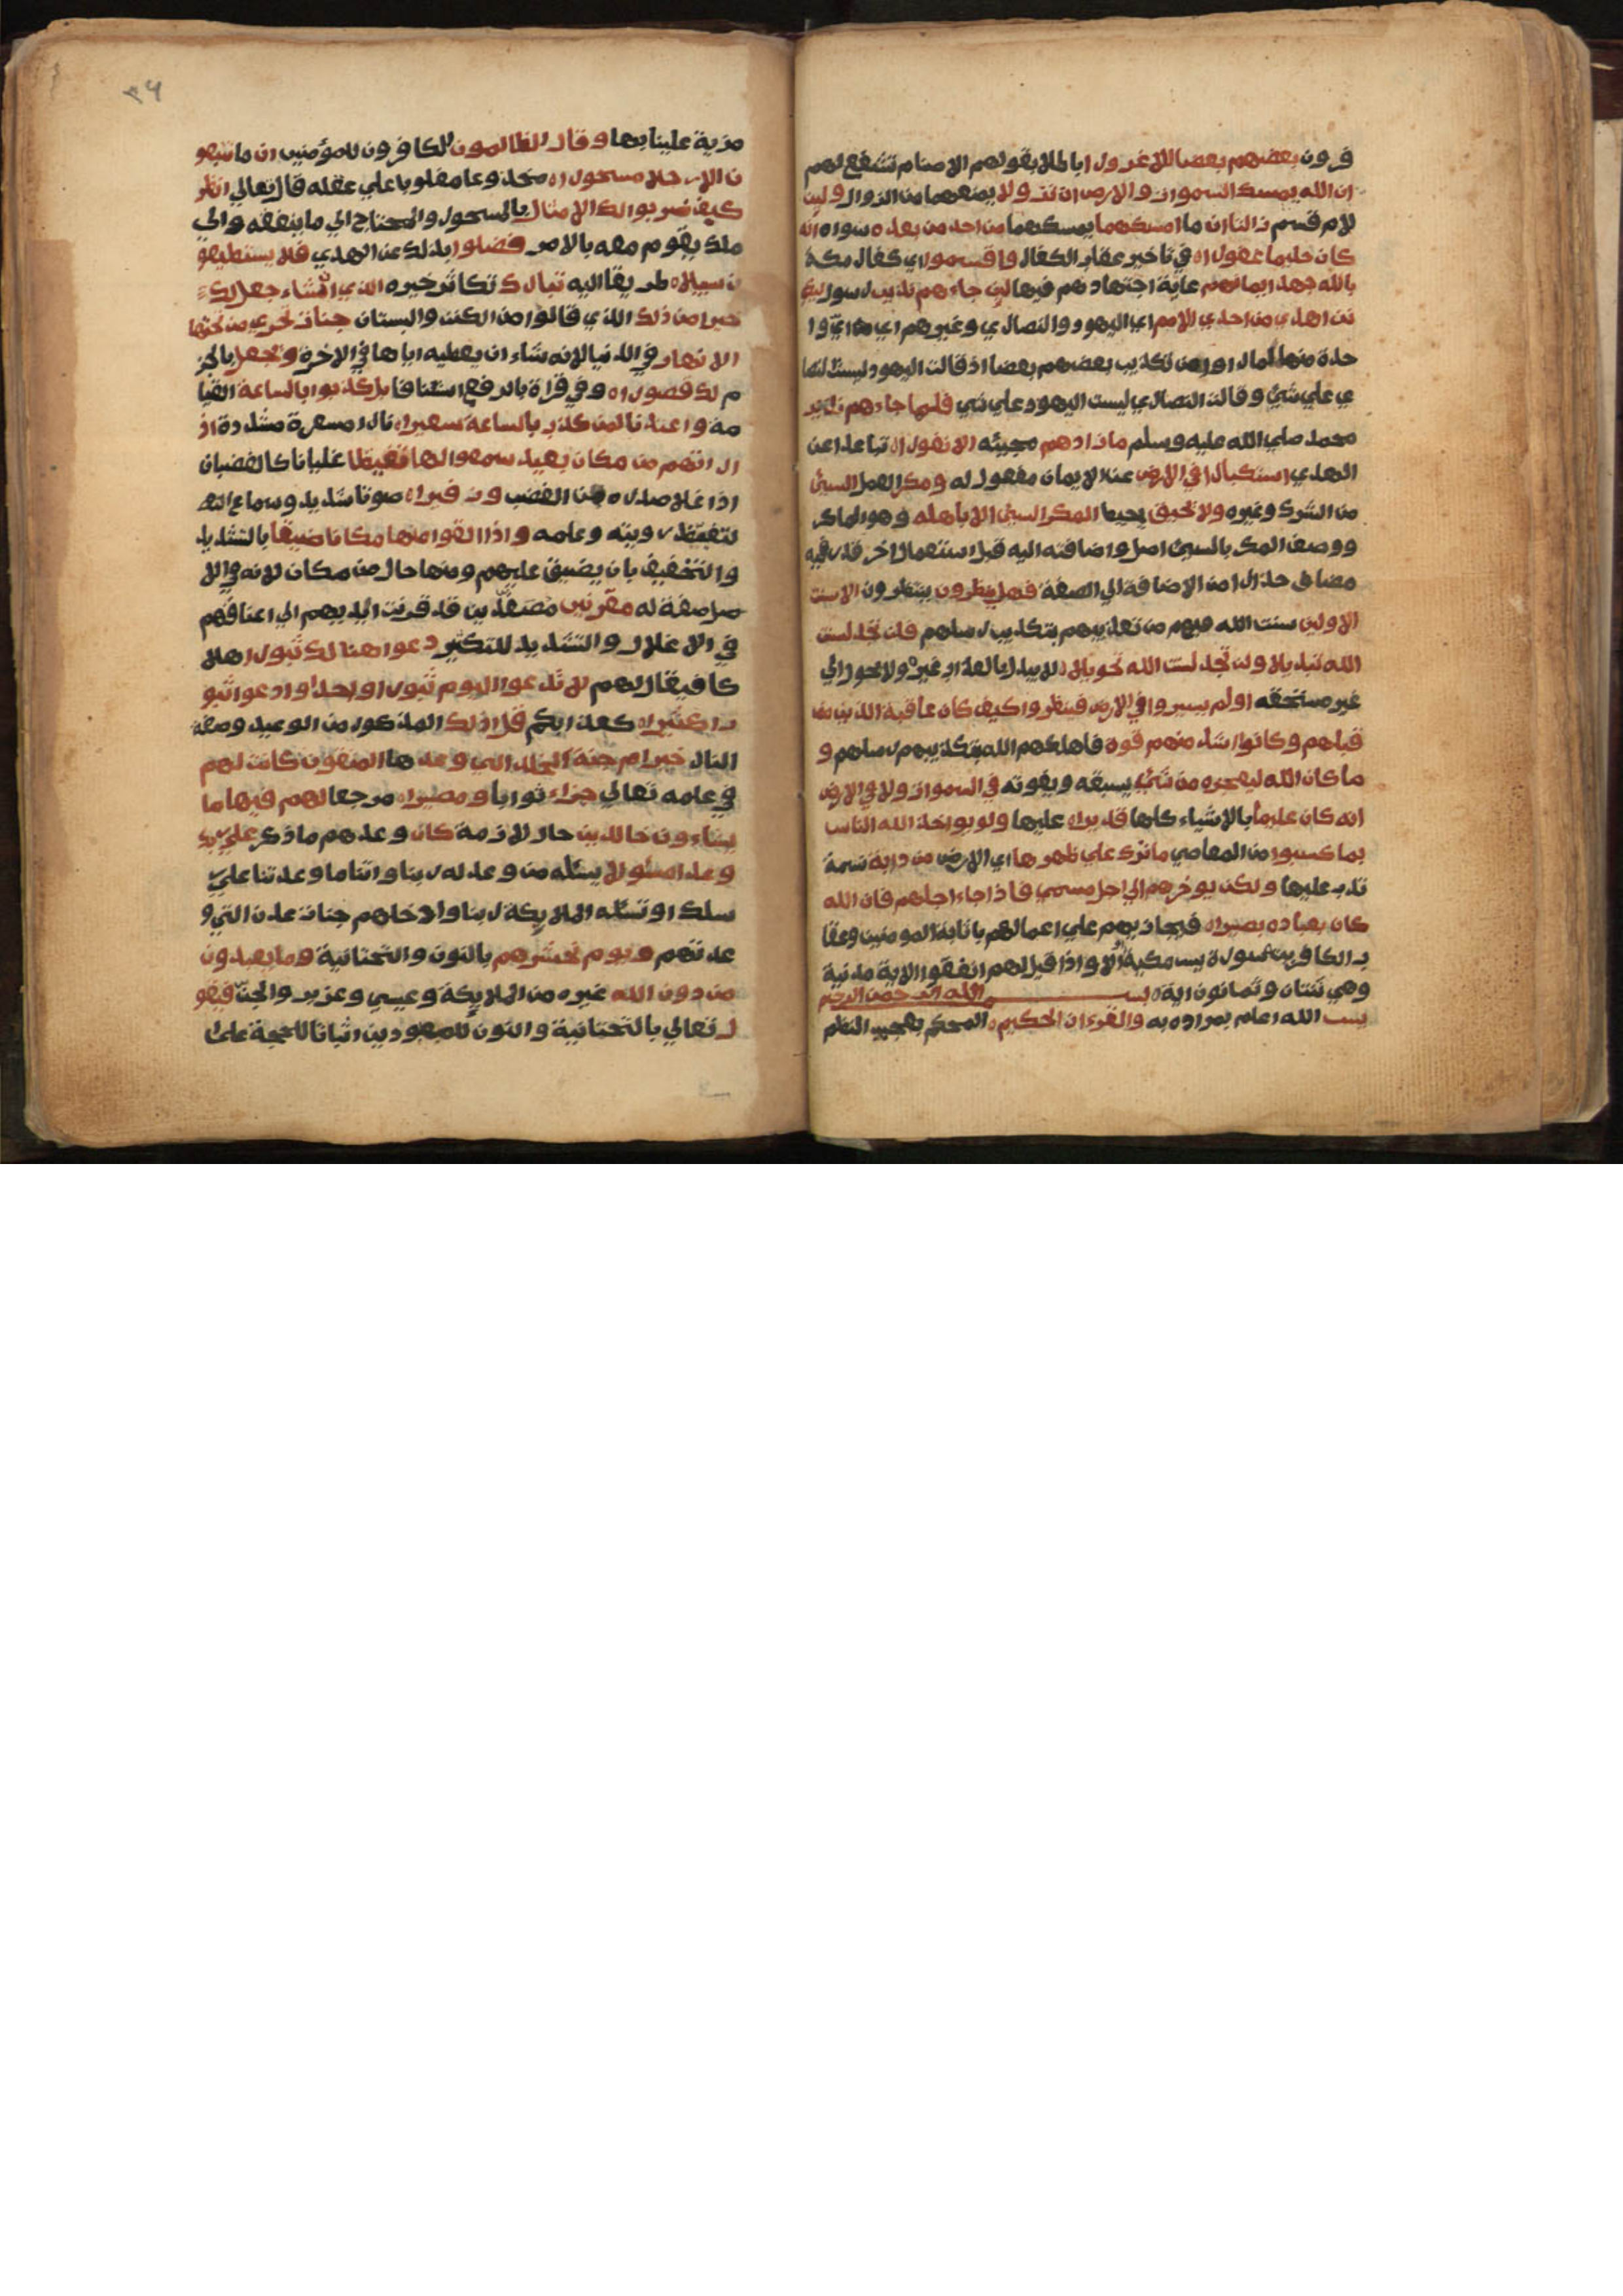 فرون بعضهم بعضا الا غرورا باطلا بقولهم الاصنام تشفع لهم
ان الله يمسك السموات والارض ان تزولا يمنعهما من الزوال ولين
لام قسم زالتا ان ما امسكهما يمسكهما من احد من بعده سواه انه
كان حليما غفورا في تاخير عقاب الكفار واقسموا اي كفار مكة
بالله جهد ايمانهم غاية اجتهادهم فيها لين جاءهم نذير رسول ليكو
نن اهدي من احدي الامم اي اليهود والنصاري وغيرهم اي اي وا
حدة منها لما راو من تكذيب بعضهم بعضا اذ قالت اليهود ليست النصا
ري علي شئ وقالت النصاري ليست اليهود علي شئ فلما جاءهم نذير
محمد صلي الله عليه وسلم ما زادهم مجيئه الا نفورا تباعدا عن
الهدي استكبارا في الارض عن الايمان مفعول له ومكر العمل السيئ
من الشرك وغيره ولا يحيق يحيط المكر السيئ الا باهله وهو الماكر
ووصف المكر بالسيئ اصل واضافته اليه قبل استعمال اخر قدر فيه
مضاف حذرا من الاضافة الي الصفة فهل ينظرون ينتظرون الا سنت
الاولين سنت الله فيهم من تعذيبهم بتكذيب رسلهم فلن تجد لسنت
الله تبديلا ولن تجد لسنت الله تحويلا لا يبدل بالعذاب غيره ولا يحول الي
غير مستحقه اولم يسيروا في الارض فينظروا كيف كان عاقبة الذين من
قبلهم وكانوا اشد منهم قوة فاهلكهم الله بتكذيبهم رسلهم و
ما كان الله ليعجزه من شئ يسبقه ويفوته في السموات ولا في الارض
انه كان عليما بالاشياء كلها قديرا عليها ولو يواخذ الله الناس
بما كسبوا من المعاصي ما ترك علي ظهرها اي الارض من دابة نسمة
تدب عليها ولكن يوخرهم الي اجل مسمي فاذا جاء اجلهم فان الله
كان بعباده بصيرا فيجازيهم علي اعمالهم باثابة المومنين وعقا
ب الكافرين سورة يس مكية الا واذا قيل لهم انفقوا الاية مدنية
وهي ثنتان وثمانون اية بسم الله الرحمن الرحيم
يس الله اعلم بمراده به والقرءان الحكيم المحكم بعجيب النظم
٣٦
مزية علينا بها وقال الظالمون الكافرون للمؤمنين ان ما تتبعو
ن الا رجلا مسحورا مخدوعا مغلوبا علي عقله قال تعالي انظر
كيف ضربوا لك الامثال بالمسحور والمحتاج الي ما ينفقه والي
ملك يقوم معه بالامر فضلوا بذلك عن الهدي فلا يستطيعو
ن سبيلا طريقا اليه تبارك تكاثر خيره الذي ان شاء جعل لك
خيرا من ذلك الذي قالوا من الكنز والبستان جنات تجري من تحتها
الانهار في الدنيا لانه شاء ان يعطيه اياها في الاخرة ويجعل بالجز
م لك قصورا وفي قراة بالرفع استنافا بل كذبوا بالساعة القيا
مة واعتدنا لمن كذب بالساعة سعيرا نارا مسعرة مشددة اذ
ا راتهم من مكان بعيد سمعوا لها تغيظا غليانا كالغضبان
اذا غلا صدره من الغضب وزفيرا صوتا شديد وسماع التـ
لتغيظ رويته وعلمه واذا القوا منها مكانا ضيقا بالتشديد
والتخفيف بان يضيق عليهم ومنها حال من مكان لانه في الا
صل صفة له مقرنين مصفدين قد قرنت ايديهم الي اعناقهم
في الاغلال والتشديد للتكثير دعوا هنالك ثبورا هلا
كا فيقال لهم لا تدعوا اليوم ثبورا واحدا وادعوا ثبو
را كثيرا كعذابكم قل اذلك المذكور من الوعيد وصفة
النار خير ام جنة الخلد التي وعدها المتقون كانت لهم
في علمه تعالي جزاء ثوابا ومصيرا مرجعا لهم فيها ما
يشاءون خالدين حال لازمة كان وعدهم ما ذكر علي ربك
وعدا مسئولا يسئله من وعد له ربنا واتنا ما وعدتنا علي ر
سلك او تسئله الملايكة ربنا وادخلهم جنات عدن التي و
عدتهم ويوم نحشرهم بالنون والتحتانية وما يعبدون
من دون الله غيره من الملايكة وعيسي وعزير والجن فيقو
ل تعالي بالتحتانية والنون للمعبودين اثباتا للحجة علي ا